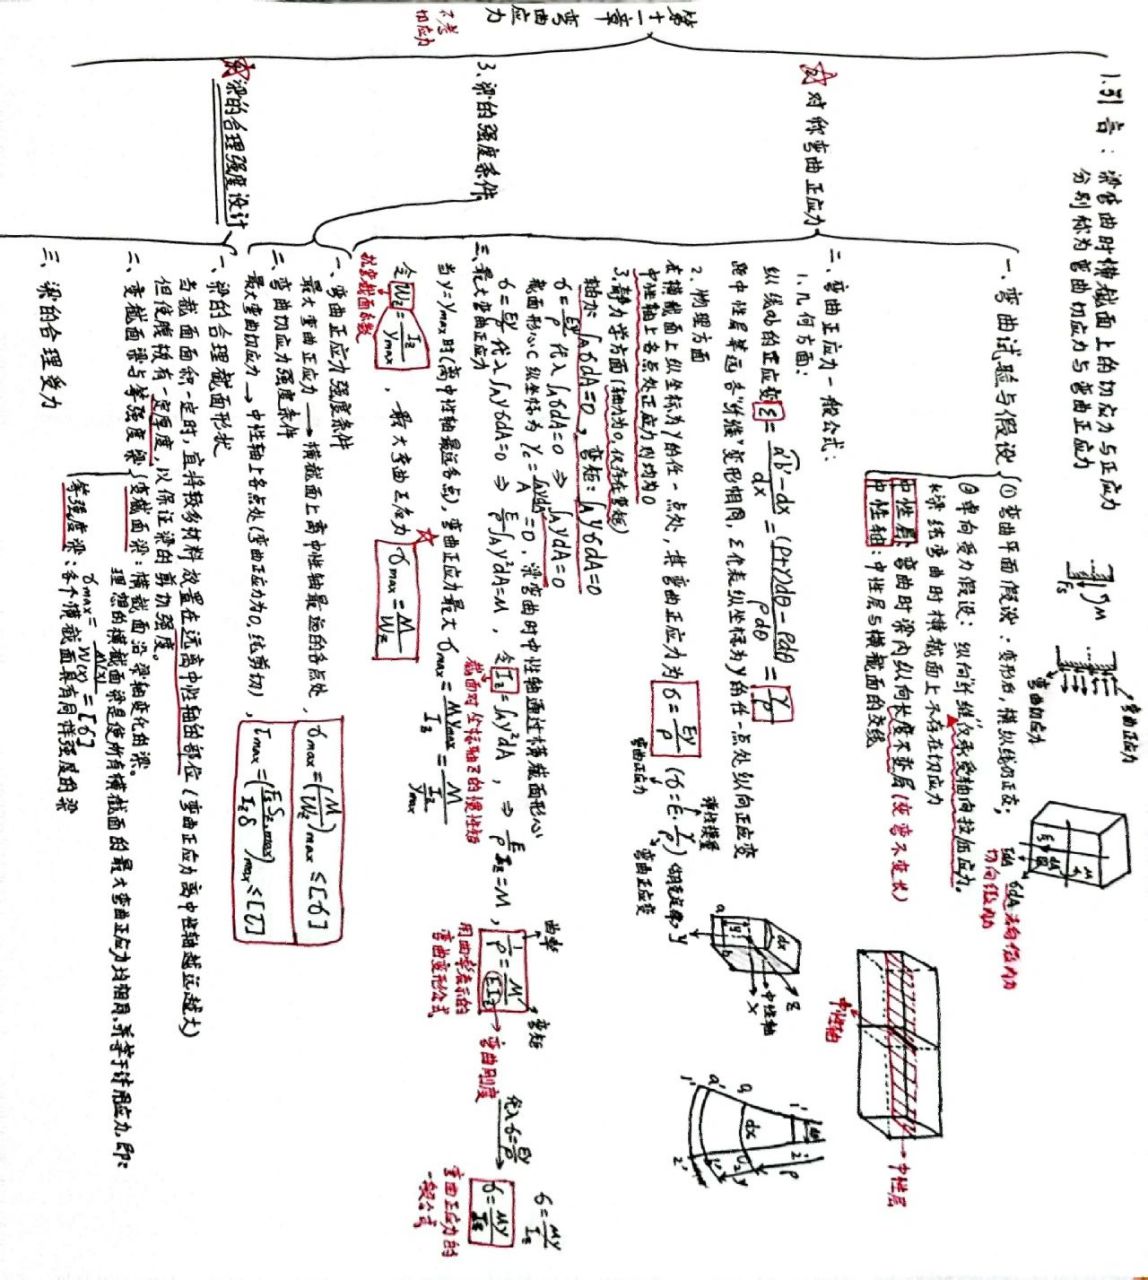 第十一章 弯曲应力
不考
切应力
1.引言：梁弯曲时横截面上的切应力与正应力
分别称为弯曲切应力与弯曲正应力
Fs
M
弯曲正应力
弯曲切应力
☆2.对称弯曲正应力
一.弯曲试验与假设
①弯曲平面假设：变形后，横纵线仍正交；
②单向受力假设：纵向"纤维"仅承受轴向拉压应力。
梁纯弯曲时横截面上不存在切应力
中性层：弯曲时梁内纵向长度不变层（变弯不变长）
中性轴：中性层与横截面的交线
σdA
切向微内力
中性轴
中性层
二.弯曲正应力一般公式：
1.几何方面：
纵线ab的正应变ε=(a'b'-dx)/dx=((ρ+y)dθ-ρdθ)/ρdθ=y/ρ
距中性层等远各"纤维"变形相同，ε代表纵坐标为y的任一点处纵向正应变
2.物理方面
在横截面上纵坐标为y的任一点处，其弯曲正应力为σ=Ey/ρ (σ=E·y/ρ) 胡克定律
弹性模量
弯曲正应力
弯曲正应变
中性轴上各点处正应力均为0
3.静力学方面(轴力为0,仅存在弯矩)
轴力：∫AσdA=0，弯矩：∫AyσdA=M
σ=Ey/ρ代入∫AσdA=0 ⇒ ∫AydA=0
截面形心C纵坐标为yc=∫AydA/A=0.梁弯曲时中性轴通过横截面形心
σ=Ey/ρ代入∫AyσdA=M ⇒ E/ρ∫Ay²dA=M，令Iz=∫Ay²dA，⇒ E/ρ Iz=M，1/ρ=M/EIz
截面对坐标轴z的惯性矩
曲率
弯矩
弯曲刚度
用曲率表示的
弯曲变形公式
代入σ=Ey/ρ
σ=My/Iz
σ=My/Iz
弯曲正应力的
一般公式
dx
z
中性轴
x
y
a
dx
ρ
三.最大弯曲正应力
当y=ymax时(离中性轴最远各点)，弯曲正应力最大σmax=Mymax/Iz=M/(Iz/ymax)
令Wz=Iz/ymax，最大弯曲正应力 ☆σmax=M/Wz
抗弯截面系数
3.梁的强度条件
一.弯曲正应力强度条件
最大弯曲正应力→横截面上离中性轴最远的各点处，σmax=(M/Wz)max≤[σ]
二.弯曲切应力强度条件
最大弯曲切应力→中性轴上各点处(弯曲正应力为0,纯剪切)，τmax=(FsSz,max/Izδ)max≤[τ]
☆梁的合理强度设计
一.梁的合理截面形状
当截面面积一定时，宜将较多材料放置在远离中性轴的部位（弯曲正应力离中性轴越远越大）
但使腹板有一定厚度，以保证梁的剪切强度。
二.变截面梁与等强度梁
变截面梁：横截面沿梁轴变化的梁。
理想的横截面梁是使所有横截面的最大弯曲正应力均相同,并等于许用应力,即:
σmax=M(x)/W(x)=[σ]
等强度梁：各个横截面具有同样强度的梁
三.梁的合理受力